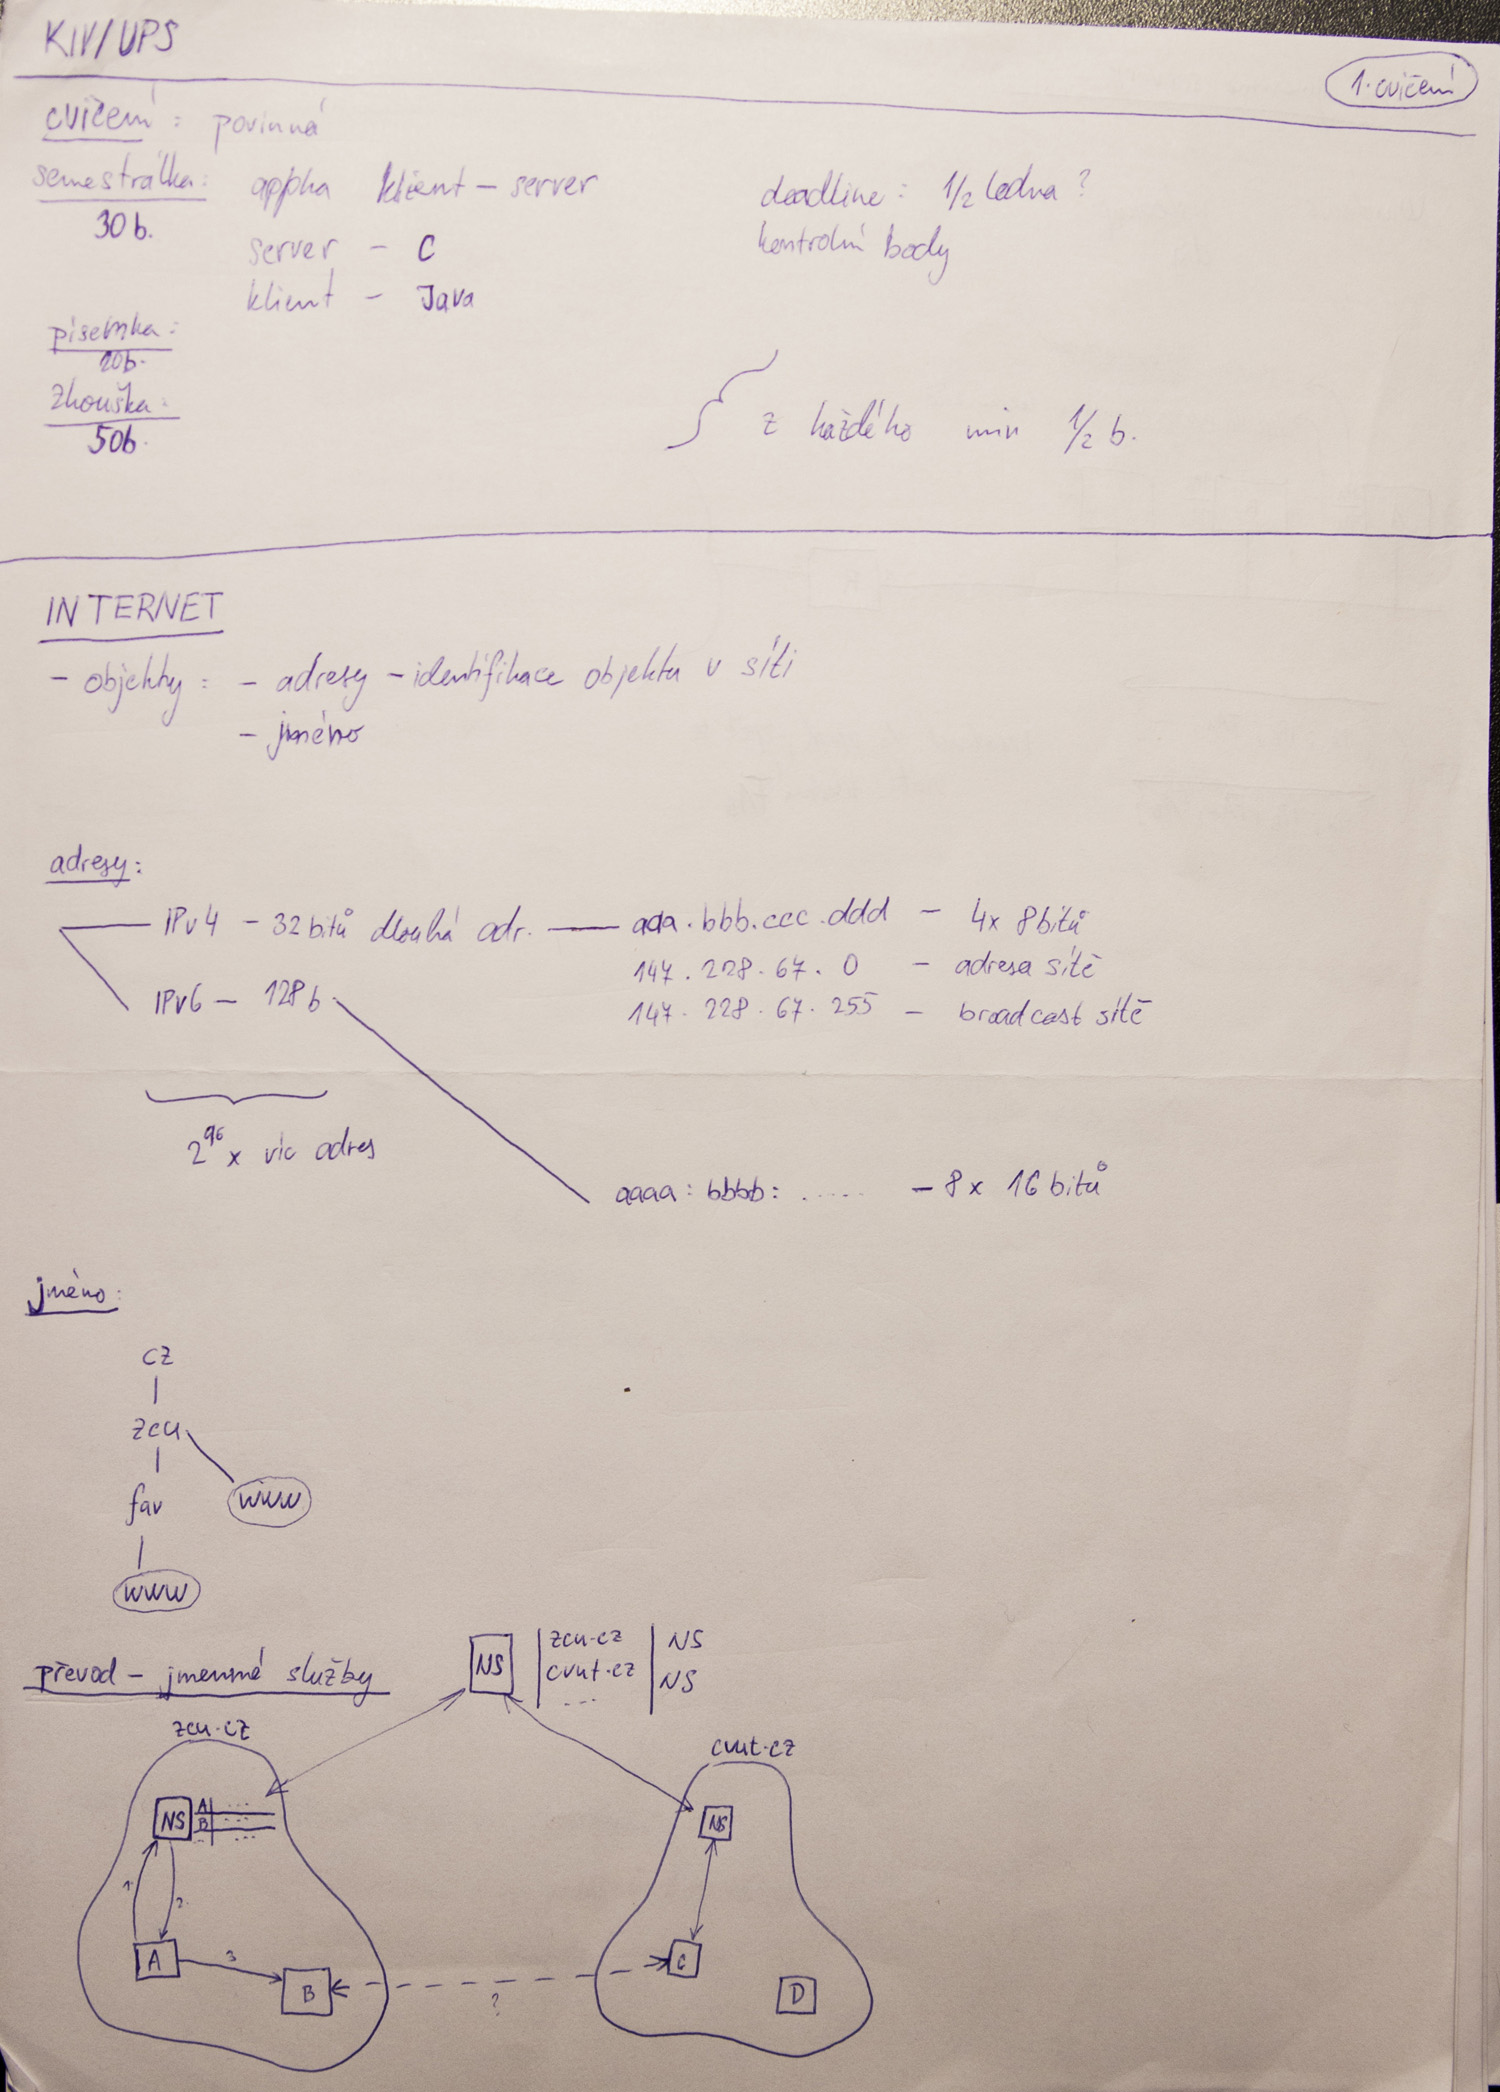 KIV/UPS
1. cvičení
cvičení : povinná
semestrálka: appka klient – server
30 b.
server – C
klient – Java
deadline : 1/2 ledna ?
kontrolní body
písemka :
20b.
Zkouška :
50b.
z každého min 1/2 b.
INTERNET
– objekty : – adresy – identifikace objektu v síti
– jméno
adresy :
IPv4 – 32 bitů dlouhá adr. — aaa.bbb.ccc.ddd – 4x 8bitů
147.228.67.0 – adresa sítě
147.228.67.255 – broadcast sítě
IPv6 – 128 b
2^96 x víc adres
aaaa : bbbb : ..... – 8x 16 bitů
jméno :
cz
zcu
fav www
www
převod – jmenné služby
NS zcu.cz NS
cvut.cz NS
...
zcu.cz
cvut.cz
NS A ...
B ...
... ...
NS
1. 2.
A 3 B
?
C
D